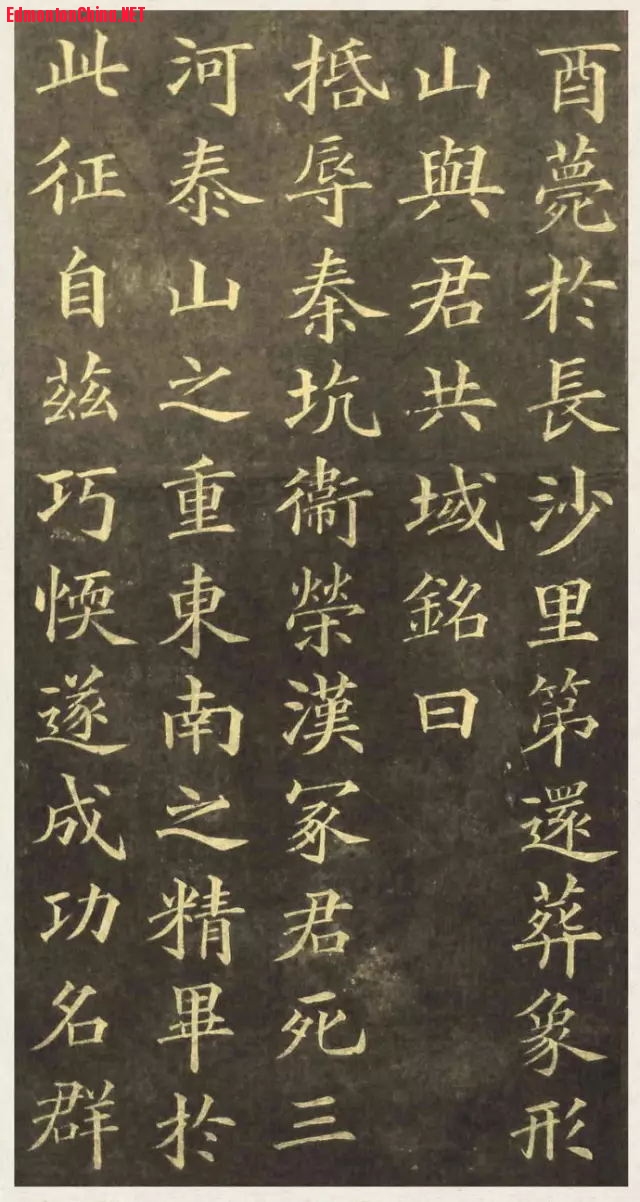 EdmontonChina.NET
酉薨於長沙里第還葬象形
山與君共域銘曰
捪辱秦坑衞榮漢冢君死三
河泰山之重東南之精畢於
此征自茲巧㥧遂成功名群